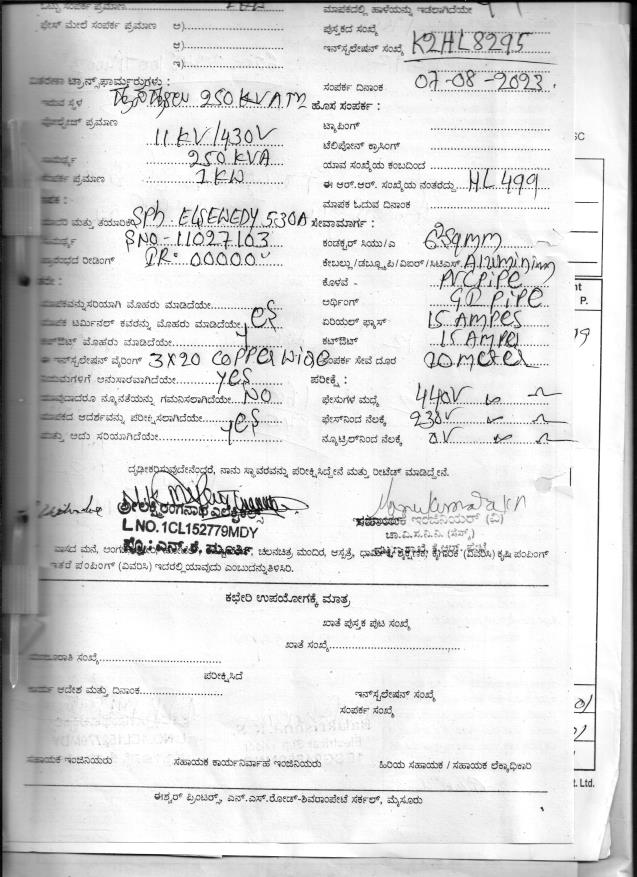 ಫೇಸ್ ಮೇಲೆ ಸಂಪರ್ಕ ಪ್ರಮಾಣ ಅ)
ಆ)
ಇ)
ಪುಸ್ತಕದ ಸಂಖ್ಯೆ
ಇನ್‌ಸ್ಟಲೇಷನ್ ಸಂಖ್ಯೆ K2HL8295
ವಿತರಣಾ ಟ್ರಾನ್ಸ್‌ಫಾರ್ಮರುಗಳು :
ಸಂಪರ್ಕ ದಿನಾಂಕ 07-08-2023
ಇರುವ ಸ್ಥಳ 250 KVA
ಹೊಸ ಸಂಪರ್ಕ :
ವೋಲ್ಟೇಜ್ ಪ್ರಮಾಣ 11 KV/430V
ಟ್ಯಾಪಿಂಗ್
ಟೆಲಿಫೋನ್ ಕ್ರಾಸಿಂಗ್
ಸಾಮರ್ಥ್ಯ 250 KVA
ಯಾವ ಸಂಖ್ಯೆಯ ಕಂಬದಿಂದ
ಸಂಪರ್ಕ ಪ್ರಮಾಣ 1 KW
ಈ ಆರ್.ಆರ್. ಸಂಖ್ಯೆಯ ನಂತರದ್ದು HL499
ಮಾಪಕ :
ಮಾಪಕ ಓದುವ ದಿನಾಂಕ
ಮಾದರಿ ಮತ್ತು ತಯಾರಿಕೆ Sph. ELSEWEDY 530A
ಸೇವಾಮಾರ್ಗ :
ಸಾಮರ್ಥ್ಯ SNO-11027103
ಕಂಡಕ್ಟರ್ ಸಿಯು/ಎ 6 sqmm
ಪ್ರಾರಂಭದ ರೀಡಿಂಗ್ IR: 00000
ಕೇಬಲ್ಲು/ಡಬ್ಲ್ಯೂಪಿ/ವಿಐಆರ್/ಸಿಟಿಎಸ್ Aluminium
ಇತರೇ :
ಕೊಳವೆ - PVC PIPE
ಮಾಪಕವನ್ನು ಸರಿಯಾಗಿ ಮೊಹರು ಮಾಡಿದೆಯೇ yes
ಅರ್ಥಿಂಗ್ GI PIPE
ಮಾಪಕ ಟರ್ಮಿನಲ್ ಕವರನ್ನು ಮೊಹರು ಮಾಡಿದೆಯೇ
ಏರಿಯಲ್ ಫ್ಯೂಸ್ 15 AMPES
ಕಟ್‌ಔಟ್ ಮೊಹರು ಮಾಡಿದೆಯೇ
ಕಟ್‌ಔಟ್ 15 AMPES
ಈ ಇನ್‌ಸ್ಟಲೇಷನ್ ವೈರಿಂಗ್ 3X20 COPPER WIRE
ಸಂಪರ್ಕ ಸೇವೆ ದೂರ 20 meter
ನಿಯಮಗಳಿಗೆ ಅನುಸಾರವಾಗಿದೆಯೇ yes
ಪರೀಕ್ಷೆ :
ಯಾವುದಾದರೂ ನ್ಯೂನತೆಯನ್ನು ಗಮನಿಸಲಾಗಿದೆಯೇ NO
ಫೇಸುಗಳ ಮಧ್ಯೆ 440V
ಮಾಪಕದ ಆದರ್ಶವನ್ನು ಪರೀಕ್ಷಿಸಲಾಗಿದೆಯೇ yes
ಫೇಸ್‌ನಿಂದ ನೆಲಕ್ಕೆ 230V
ಮತ್ತು ಅದು ಸರಿಯಾಗಿದೆಯೇ
ನ್ಯೂಟ್ರಲ್‌ನಿಂದ ನೆಲಕ್ಕೆ 0V
ದೃಢೀಕರಿಸುವುದೇನೆಂದರೆ, ನಾನು ಸ್ಥಾವರವನ್ನು ಪರೀಕ್ಷಿಸಿದ್ದೇನೆ ಮತ್ತು ರೀಟೆಡ್ ಮಾಡಿದ್ದೇನೆ.
L.NO.1CL152779MDY
ಸಹಾಯಕ ಇಂಜಿನಿಯರ್ (ವಿ)
ಚಾ.ವಿ.ಸ.ನಿ.ನಿ
ಇತರೆ ಪಂಪಿಂಗ್ (ವಿವರಿಸಿ) ಇದರಲ್ಲಿ ಯಾವುದು ಎಂಬುದನ್ನು ತಿಳಿಸಿರಿ.
ಕಛೇರಿ ಉಪಯೋಗಕ್ಕೆ ಮಾತ್ರ
ಖಾತೆ ಪುಸ್ತಕ ಪುಟ ಸಂಖ್ಯೆ
ಖಾತೆ ಸಂಖ್ಯೆ
ಪರೀಕ್ಷಿಸಿದೆ
ಕಾರ್ಯ ಆದೇಶ ಮತ್ತು ದಿನಾಂಕ
ಇನ್‌ಸ್ಟಲೇಷನ್ ಸಂಖ್ಯೆ
ಸಂಪರ್ಕ ಸಂಖ್ಯೆ
ಸಹಾಯಕ ಇಂಜಿನಿಯರು ಸಹಾಯಕ ಕಾರ್ಯನಿರ್ವಾಹ ಇಂಜಿನಿಯರು ಹಿರಿಯ ಸಹಾಯಕ / ಸಹಾಯಕ ಲೆಕ್ಕಾಧಿಕಾರಿ
ಈಶ್ವರ್ ಪ್ರಿಂಟರ್ಸ್, ಎನ್.ಎಸ್.ರೋಡ್-ಶಿವರಾಂಪೇಟೆ ಸರ್ಕಲ್, ಮೈಸೂರು